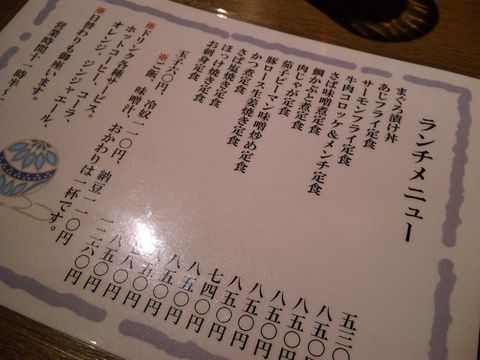 ランチメニュー
まぐろ漬け丼 五三〇円
あじフライ定食 八五〇円
サーモンフライ定食 八五〇円
牛肉コロッケ&メンチ定食 八五〇円
さば味噌煮定食 八五〇円
鯛かぶと煮定食 八五〇円
肉じゃが定食 七四〇円
茄子ピーマン味噌炒め定食 八五〇円
豚ロース生姜焼き定食 八五〇円
かつ煮定食 八五〇円
さば塩焼き定食 八五〇円
ほっけ焼き定食 八五〇円
お刺身定食 一二六〇円
玉子六〇円、冷奴一一〇円、納豆一一〇円
※ご飯、味噌汁、おかわりは一杯です。
※ドリンク各種サービス。
オレンジ、ジンジャエール、
※日替わり御座います。
営業時間十一時半〜